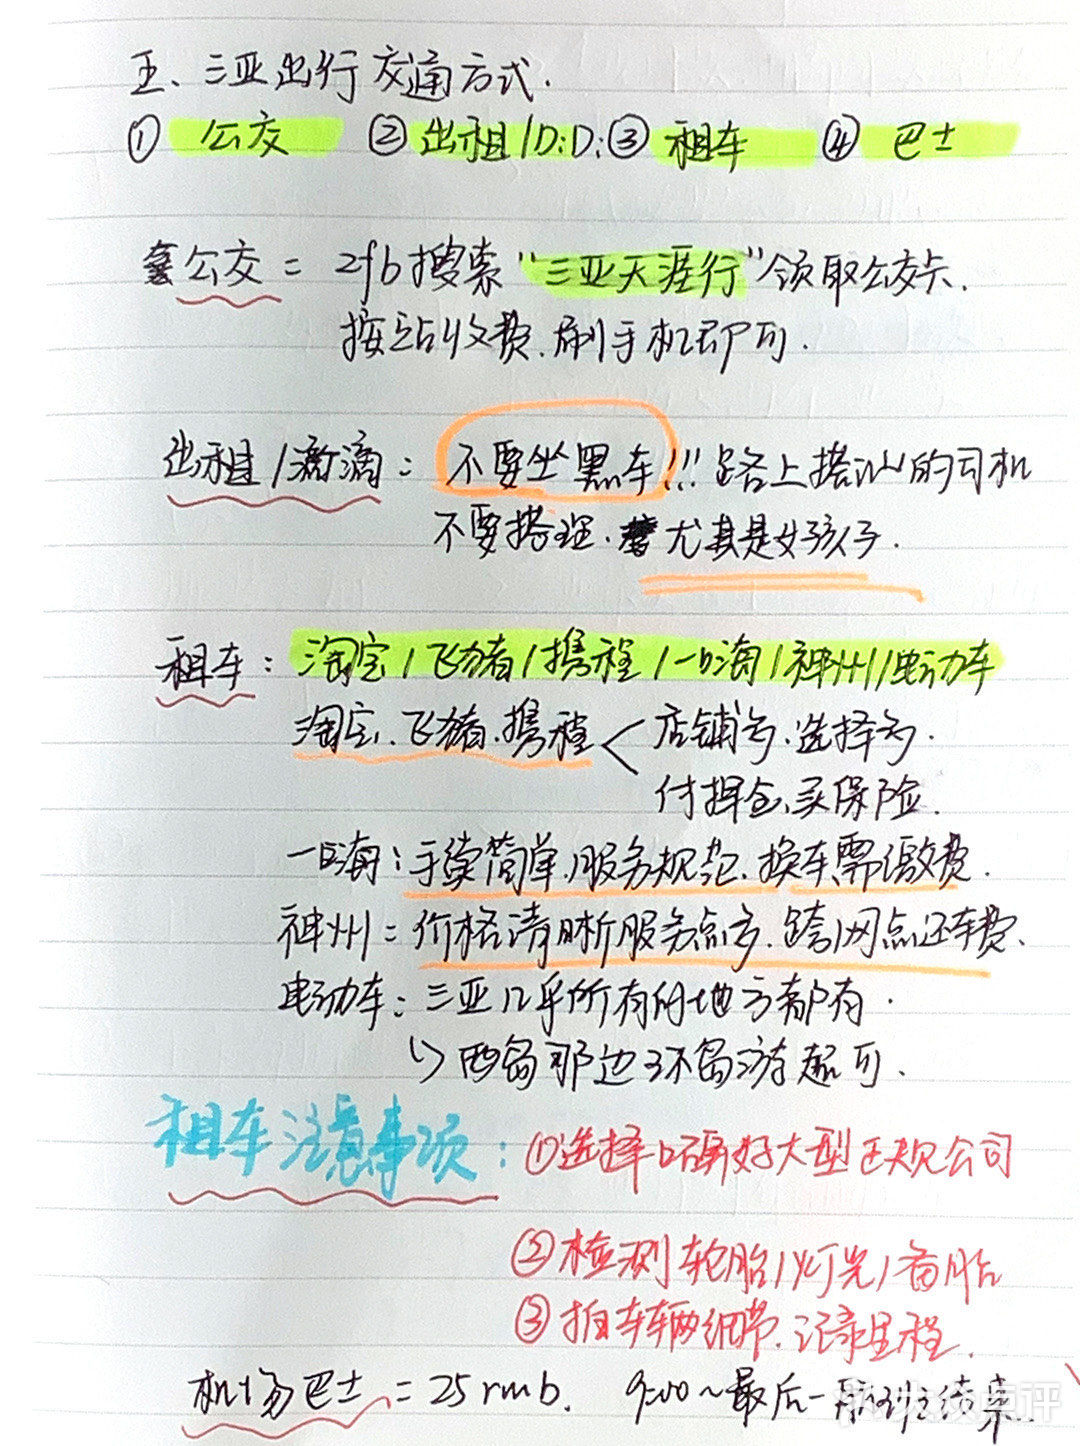 五、三亚出行交通方式.
① 公交 ② 出租/D:D: ③ 租车 ④ 巴士
公交 = zfb搜索“三亚天涯行”领取公交卡.
按站收费.刷手机即可.
出租/滴滴: 不要坐黑车!!! 路上搭讪的司机
不要搭理. 尤其是女孩子.
租车: 淘宝/飞猪/携程/一嗨/神州/电动车
淘宝.飞猪.携程 < 店铺多.选择多.
付押金.买保险.
一嗨: 手续简单.服务规范.换车需缴费.
神州: 价格清晰服务点多.跨网点还车费.
电动车: 三亚几乎所有的地方都有.
↳西岛那边环岛游超可.
租车注意事项: ①选择口碑好大型正规公司
②检测轮胎/灯光/备胎
③拍车辆细节.记录里程.
机场巴士 = 25rmb. 9:00~最后一班结束..
大众点评